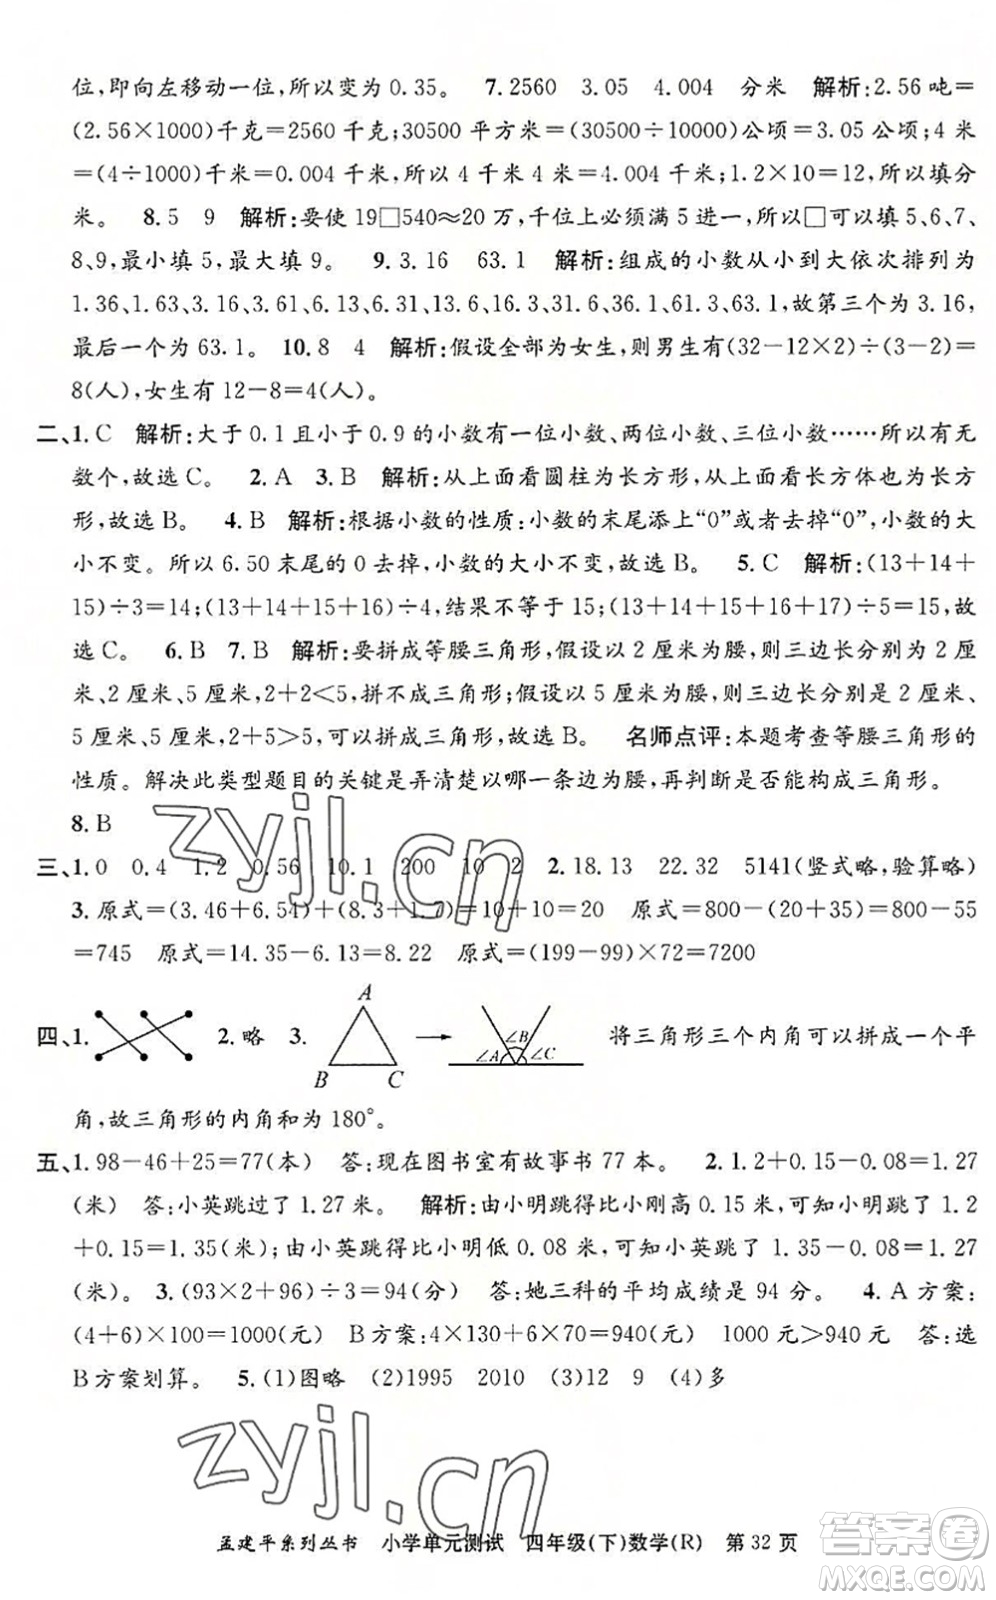 位,即向左移动一位,所以变为0.35。 7.2560 3.05 4.004 分米 解析:2.56吨=
(2.56×1000)千克=2560千克;30500平方米=(30500÷10000)公顷=3.05公顷;4米
=(4÷1000)千米=0.004千米,所以4千米4米=4.004千米;1.2×10=12,所以填分
米。 8.5 9 解析:要使19□540≈20万,千位上必须满5进一,所以□可以填5、6、7、
8、9,最小填5,最大填9。 9.3.16 63.1 解析:组成的小数从小到大依次排列为
1.36、1.63、3.16、3.61、6.13、6.31、13.6、16.3、31.6、36.1、61.3、63.1,故第三个为3.16,
最后一个为63.1。 10.8 4 解析:假设全部为女生,则男生有(32-12×2)÷(3-2)=
8(人),女生有12-8=4(人)。
二、1.C 解析:大于0.1且小于0.9的小数有一位小数、两位小数、三位小数……所以有无
数个,故选C。 2.A 3.B 解析:从上面看圆柱为长方形,从上面看长方体为长方
形,故选B。 4.B 解析:根据小数的性质:小数的末尾添上“0”或者去掉“0”,小数的大
小不变。所以6.50末尾的0去掉,小数的大小不变,故选B。 5.C 解析:(13+14+
15)÷3=14;(13+14+15+16)÷4,结果不等于15;(13+14+15+16+17)÷5=15,故
选C。 6.B 7.B 解析:要拼成等腰三角形,假设以2厘米为腰,则三边长分别为2厘
米、2厘米、5厘米,2+2<5,拼不成三角形;假设以5厘米为腰,则三边长分别是2厘米、
5厘米、5厘米,2+5>5,可以拼成三角形,故选B。 名师点评:本题考查等腰三角形的
性质。解决此类型题目的关键是弄清楚以哪一条边为腰,再判断是否能构成三角形。
8.B
三、1.0 0.4 1.2 0.56 10.1 200 10 2 2.18.13 22.32 5141(竖式略,验算略)
3.原式=(3.46+6.54)+(8.3+1.7)=10+10=20 原式=800-(20+35)=800-55
=745 原式=14.35-6.13=8.22 原式=(199-99)×72=7200
四、1. 2.略 3. A B C ∠A ∠B ∠C 将三角形三个内角可以拼成一个平
角,故三角形的内角和为180°。
五、1.98-46+25=77(本) 答:现在图书室有故事书77本。 2.1.2+0.15-0.08=1.27
(米) 答:小英跳过了1.27米。 解析:由小明跳得比小刚高0.15米,可知小明跳了1.2
+0.15=1.35(米);由小英跳得比小明低0.08米,可知小英跳了1.35-0.08=1.27
(米)。 3.(93×2+96)÷3=94(分) 答:她三科的平均成绩是94分。 4.A方案:
(4+6)×100=1000(元) B方案:4×130+6×70=940(元) 1000元>940元 答:选
B方案划算。 5.(1)图略 (2)1995 2010 (3)12 9 (4)多
孟建平系列丛书 小学单元测试 四年级(下)数学(R) 第32页
zyjl.cn
zyjl.cn
答案圈
MXQE.COM